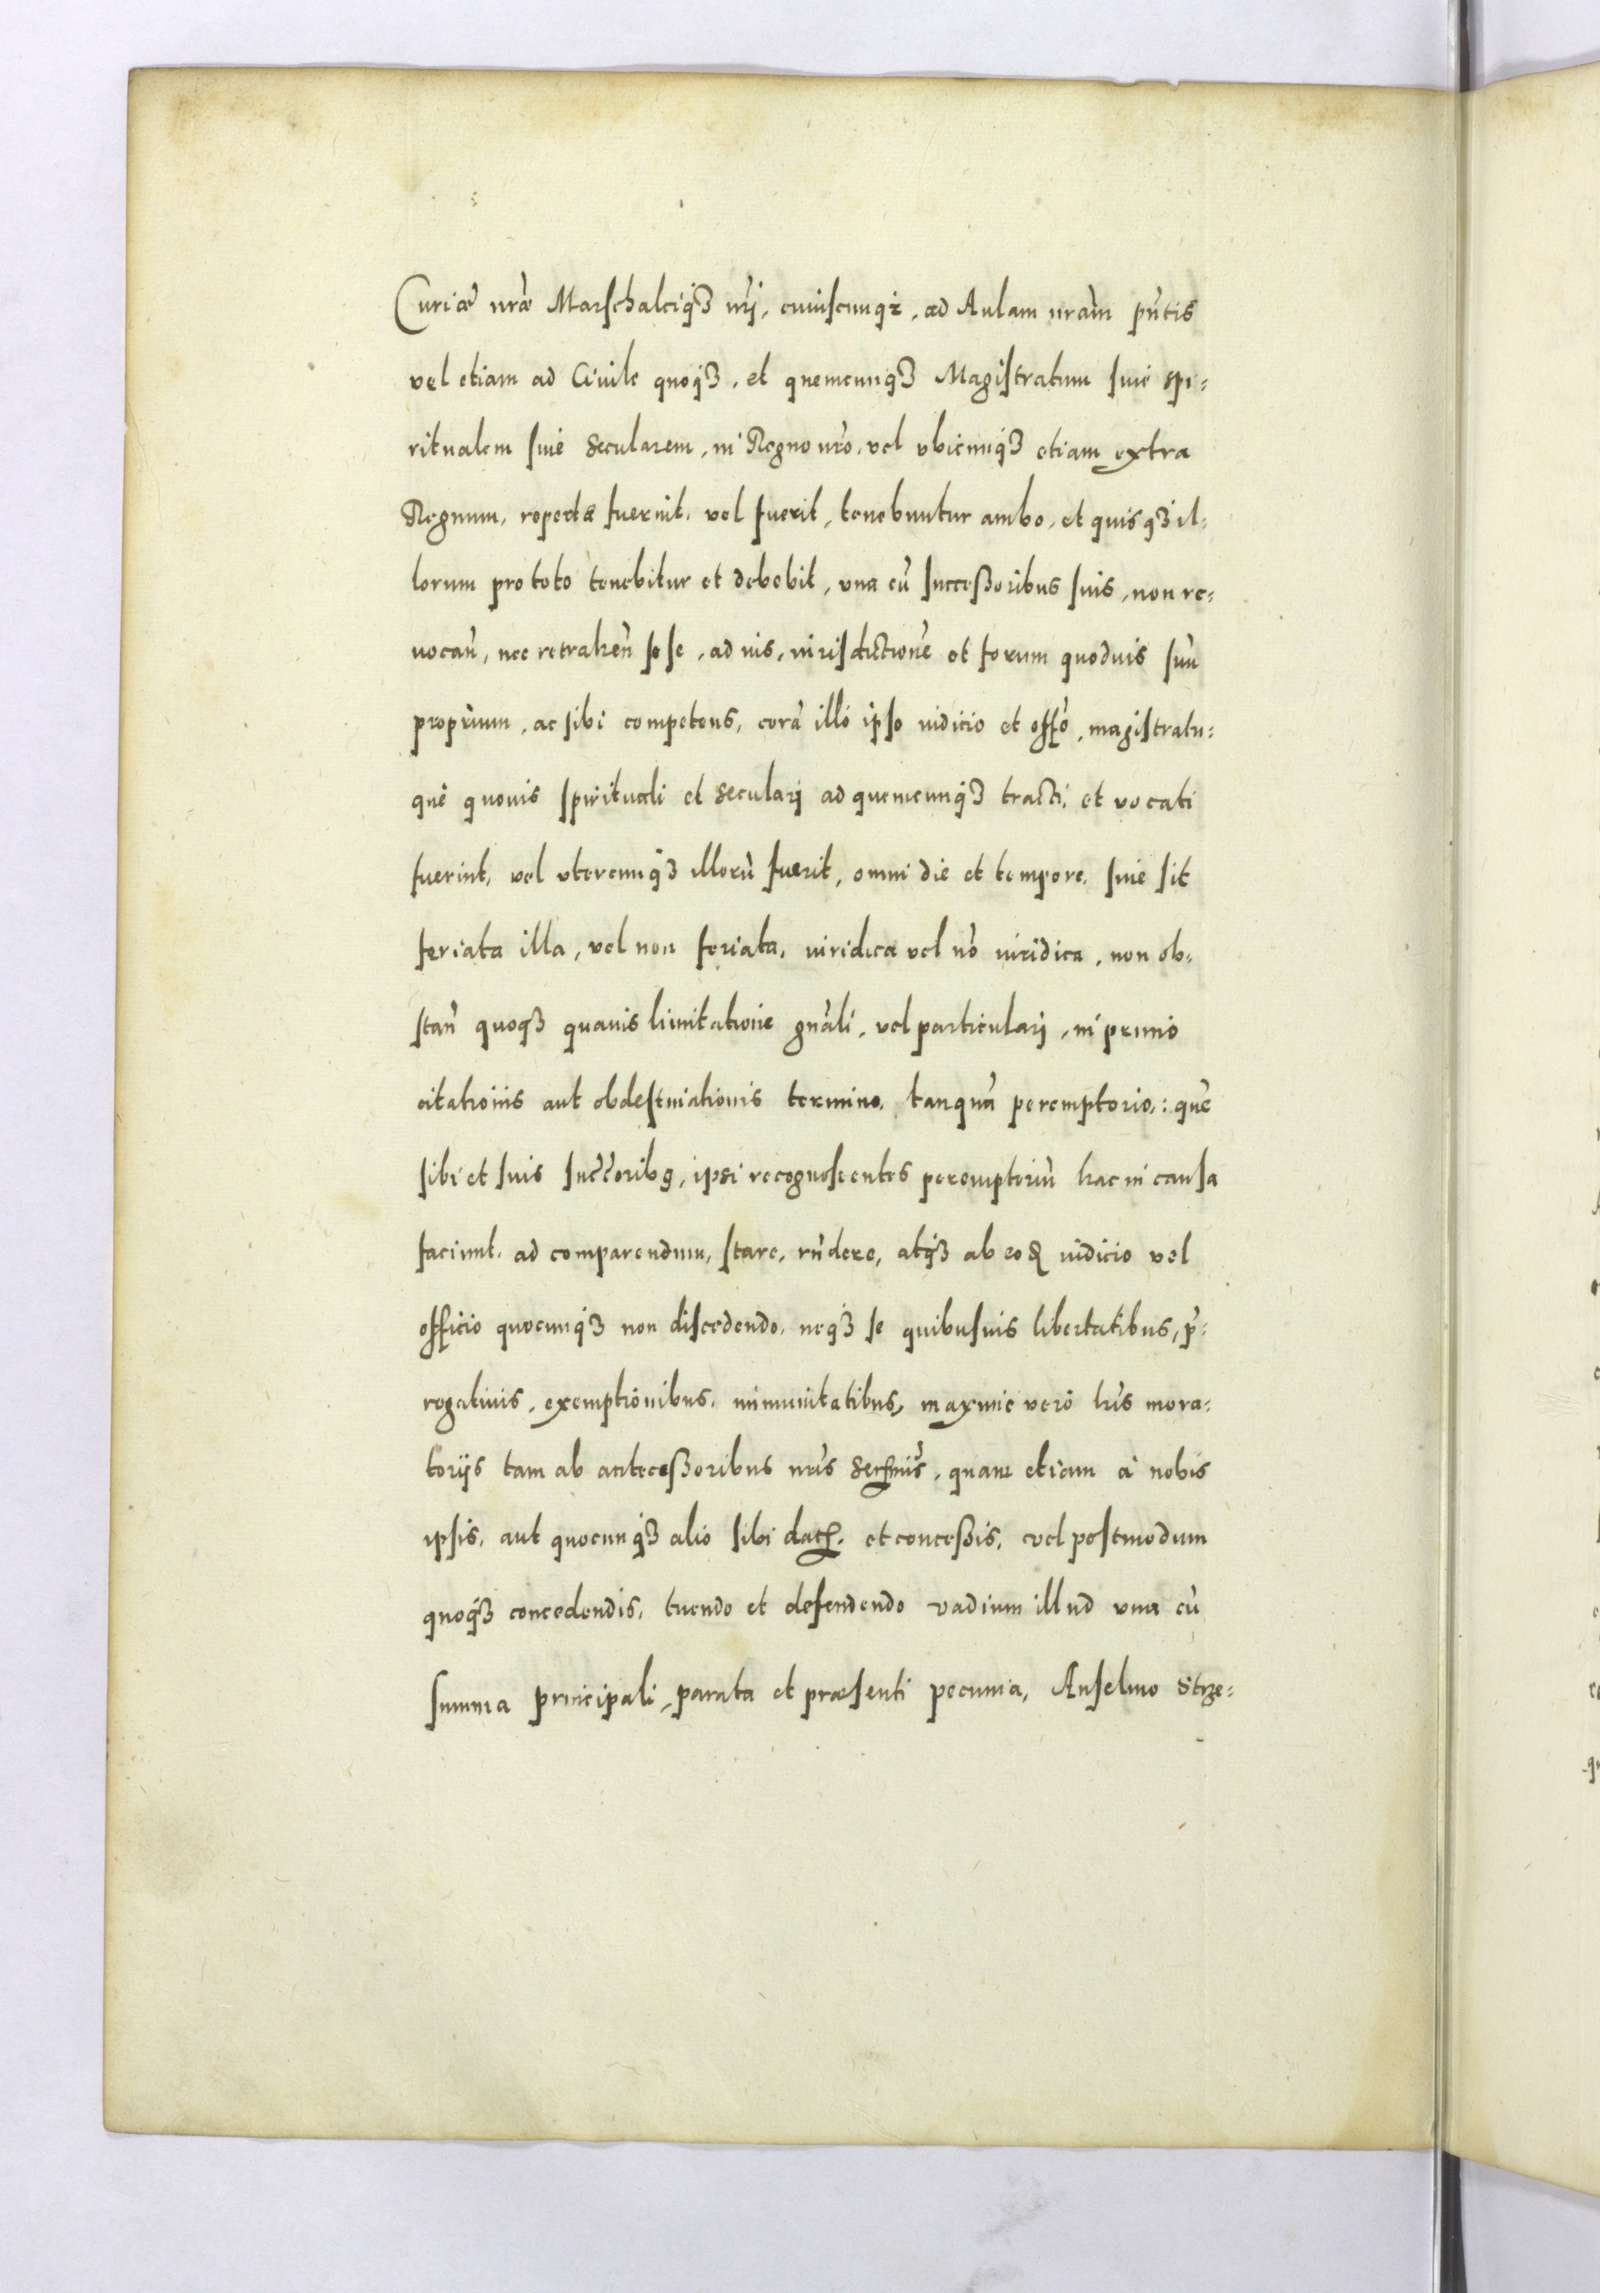 Curiæ nr̃æ Marschalciq́ꝫ nr̃j, cuiuscunq́ꝫ, ad Aulam nr̃am pñtis
vel etiam ad Ciuile quoq́ꝫ, et quemcunq́ꝫ Magistratum siue spi=
ritualem siue secularem, in Regno nr̃o, vel vbicunq́ꝫ etiam extra
Regnum, repertæ fuerint, vel fuerit, tenebuntur ambo, et quisq́ꝫ il=
lorum pro toto tenebitur et debebit, vna cũ successoribus suis, non re=
uocañ, nec retraheñ sese, ad ius, iurisdictionẽ et forum quoduis suũ
proprium, ac sibi competens, corã illo ipso iudicio et offo, magistratu=
que quouis spirituali et secularj ad quemcunq́ꝫ tracti, et vocati
fuerint, vel vtercunq́ꝫ illorũ fuerit, omni die et tempore, siue sit
feriata illa, vel non feriata, iuridica vel nõ iuridica, non ob=
stañ quoq́ꝫ quauis limitatione gñali, vel particularj, in primo
citationis aut obdestinationis termino, tanquã peremptorio,: quẽ
sibi et suis succ̃orib9, ipsi recognoscentes peremptoriũ hac in causa
faciunt, ad comparendum, stare, rñdere, atq́ꝫ ab eoд iudicio vel
officio quocunq́ꝫ non discedendo, neq́ꝫ se quibusuis libertatibus, p̃=
rogatiuis, exemptionibus, immunitatibus, maxime vero lr̃is mora=
torijs tam ab antecessoribus nr̃is serẽmis, quam etiam à nobis
ipsis, aut quocunq́ꝫ alio sibi datꝭ, et concessis, vel postmodum
quoq́ꝫ concedendis, tuendo et defendendo vadium illud vna cũ
summa principali, parata et præsenti pecunia, Anselmo Strze=